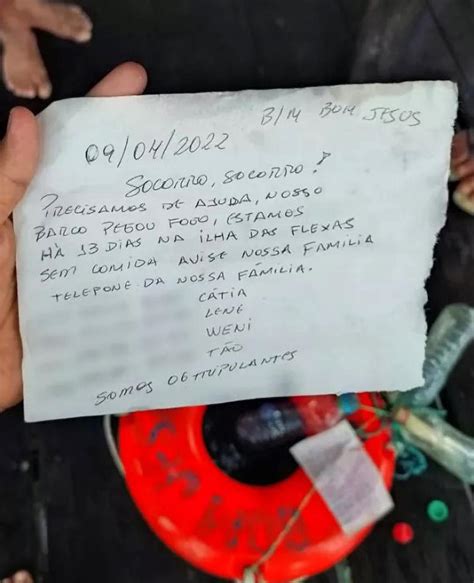 B/M BOM JESUS
09/04/2022
SOCORRO, SOCORRO!
PRECISAMOS DE AJUDA, NOSSO
BARCO PEGOU FOGO, ESTAMOS
HÁ 13 DIAS NA ILHA DAS FLEXAS
SEM COMIDA AVISE NOSSA FAMILIA
TELEPONE DA NOSSA FÁMILIA.
CÁTIA
LENE
WENI
TÃO
SOMOS 06 TRIPULANTES